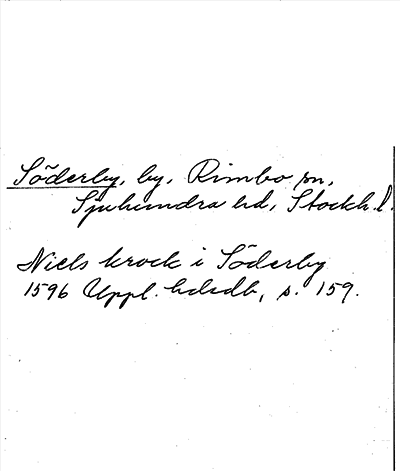 Söderby, by, Rimbo sn,
Sjuhundra hd, Stockh. l.
Niels krock i Söderby
1596 Uppl. hdsdb, s. 159.